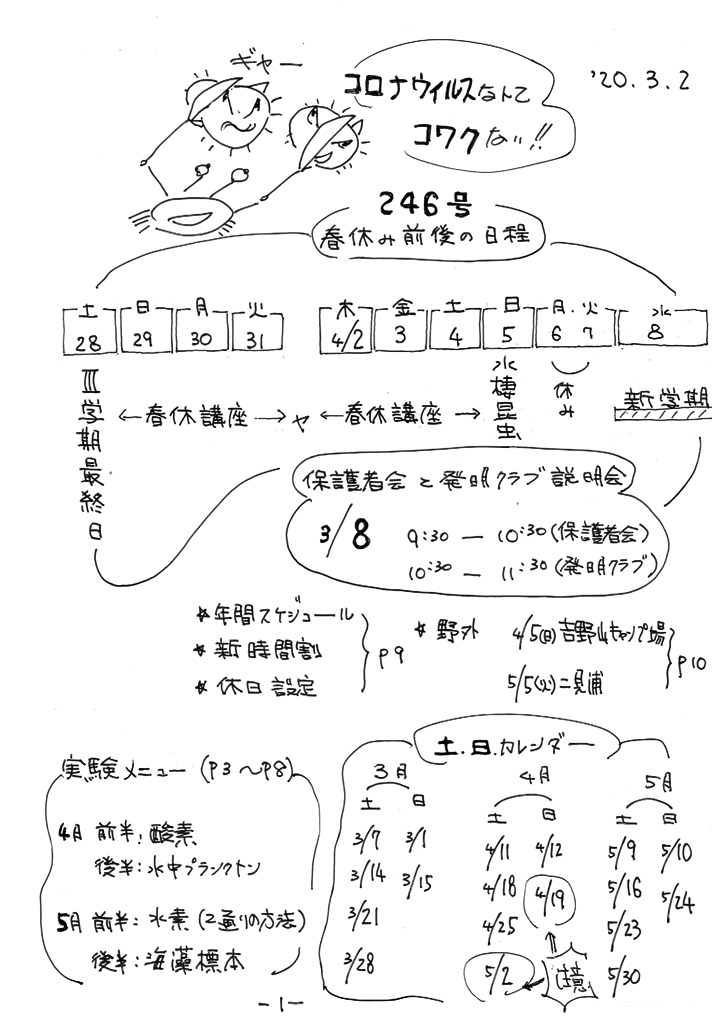 ギャー
コロナウィルスなんて
コワクない!!
'20.3.2
246号
春休み前後の日程
土 日 月 火 木 金 土 日 月.火 水
28 29 30 31 4/2 3 4 5 6 7 8
Ⅲ学期最終日
←春休講座→ヤ←春休講座→
水棲昆虫
休み
新学期
保護者会と発明クラブ説明会
3/8 9:30 — 10:30(保護者会)
10:30 — 11:30(発明クラブ)
★年間スケジュール
★新時間割
★休日設定
P9
★野外 4/5(日)吉野山キャンプ場
5/5(火)二見浦
P10
実験メニュー(P3〜P8)
4月 前半:酸素
後半:水中プランクトン
5月 前半:水素(2通りの方法)
後半:海藻標本
土.日.カレンダー
3月
土 日
3/7 3/1
3/14 3/15
3/21
3/28
4月
土 日
4/11 4/12
4/18 4/19
4/25
5/2
注意
5月
土 日
5/9 5/10
5/16 5/24
5/23
5/30
-1-